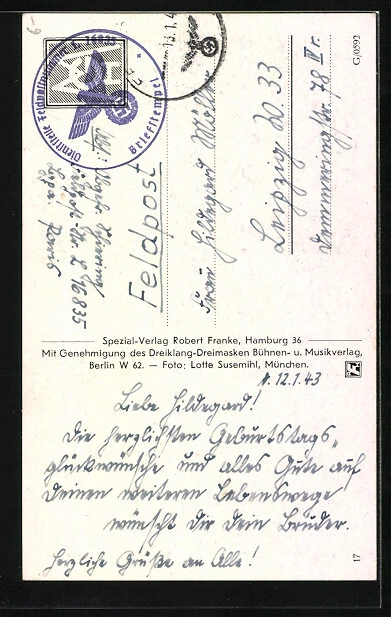 Dienststelle Feldpostnummer L 16835
Briefstempel
13.1.4
Feldpost
Feldpost-Nr L 16835
Frau Hildegard Müller
Leipzig W. 33
Demmeringstr. 78 IV r.
G/0592
Spezial-Verlag Robert Franke, Hamburg 36
Mit Genehmigung des Dreiklang-Dreimasken Bühnen- u. Musikverlag,
Berlin W 62. — Foto: Lotte Susemihl, München.
12.1.43
Liebe Hildegard!
Die herzlichsten Geburtstags-
glückwünsche und alles Gute auf
Deinen weiteren Lebenswege
wünscht Dir Dein Bruder.
Herzliche Grüße an Alle!
17